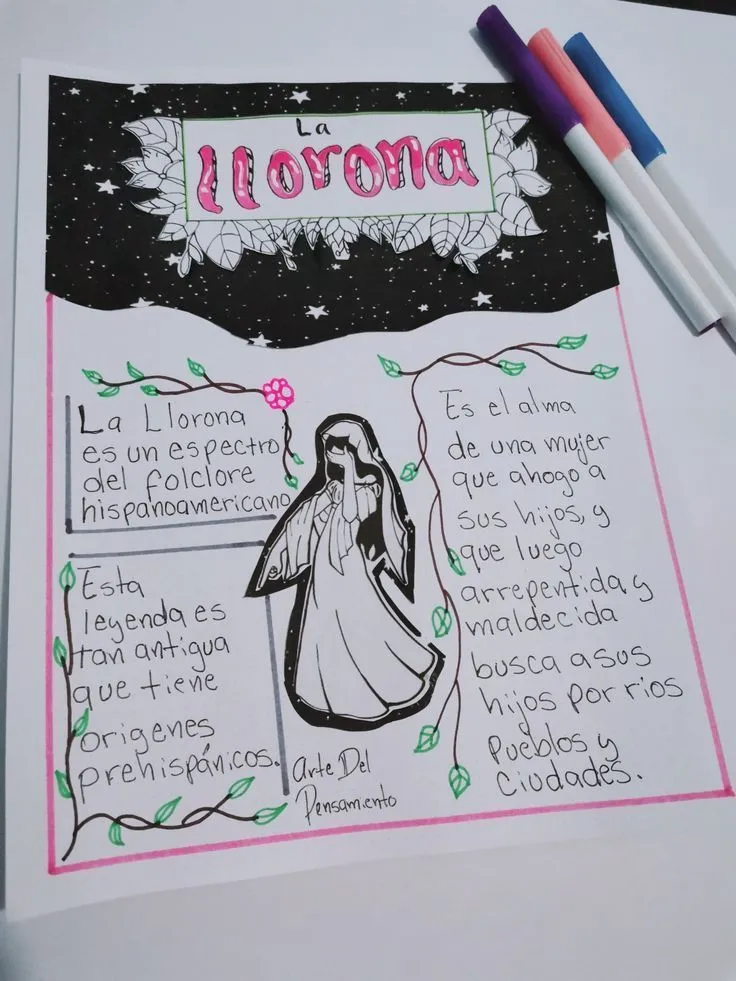 La
llorona
La Llorona
es un espectro
del folclore
hispanoamericano
Esta
leyenda es
tan antigua
que tiene
origenes
prehispánicos.
Arte Del
Pensamiento
Es el alma
de una mujer
que ahogo a
sus hijos, y
que luego
arrepentida y
maldecida
busca a sus
hijos por rios
pueblos y
ciudades.